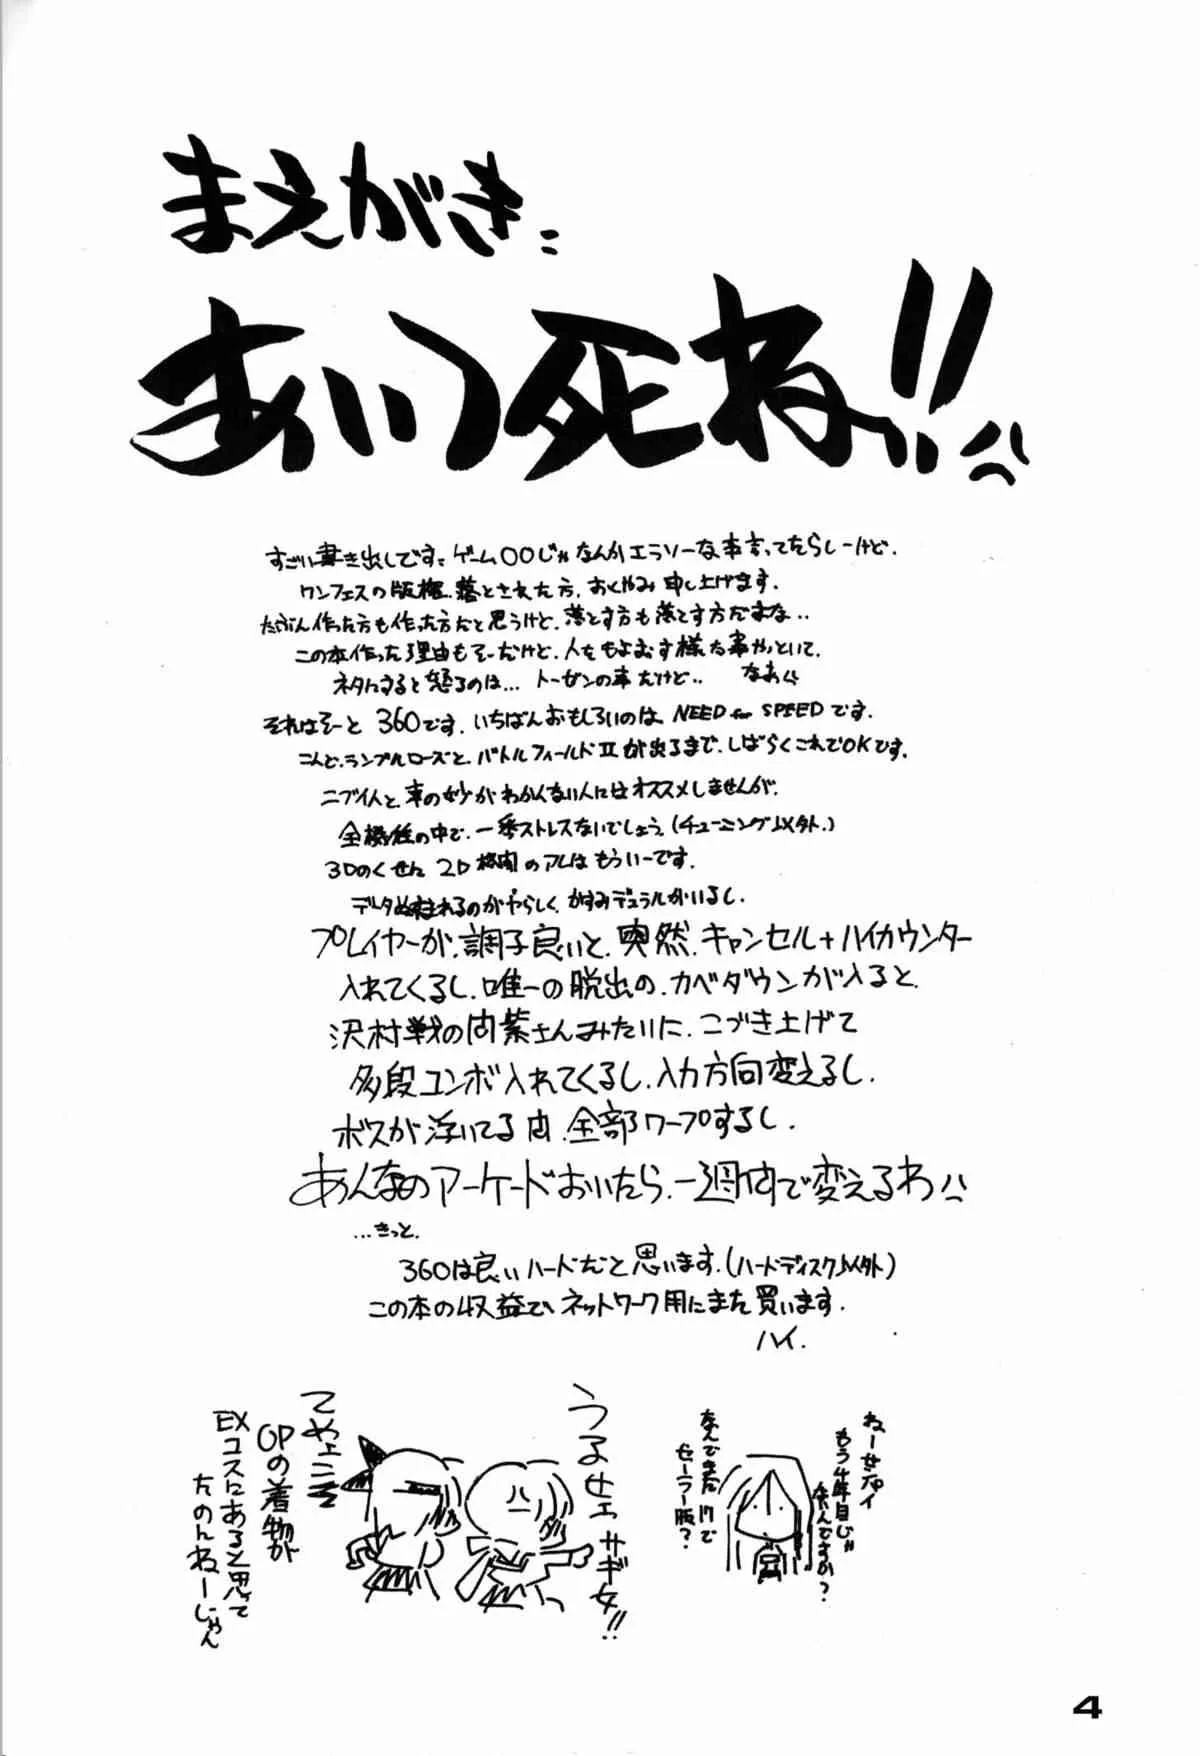 まえがき:
あいつ死ね!!
すごい書き出しです。ゲーム〇〇じゃなんかエラソーな事言ってたらしーけど、
ワンフェスの版権、落とされた方、おくやみ申し上げます。
たぶん作った方も作った方だと思うけど、落とす方も落とす方だよな..
この本作った理由もそーだけど、人をもよおす様な事やっといて、
ネタにすると怒るのは... トーゼンの事だけど.. なあ
それはそーと 360です。いちばんおもしろいのは、NEED for SPEEDです。
こんど、ランブルローズと、バトルフィールドIIが出るまで、しばらくこれでOKです。
ニブイ人と、車の妙がわかんない人にはオススメしませんが、
全機種の中で、一番ストレスないでしょう。(チューニング以外。)
3Dのくせに 2D格闘のアレはもういーです。
データぬすまれるのがやらしく、かすみデュラルがいるし、
プレイヤーが、調子良いと、突然、キャンセル+ハイカウンター
入れてくるし、唯一の脱出の、カベダウンが入ると、
沢村戦の尚紫さんみたいに、こづき上げて
多段コンボ入れてくるし、入力方向変えるし、
ボスが浮いてる内、全部ワープするし、
あんなのアーケードおいたら、一週間で変えるわ
...きっと。
360は良いハードだと思います。(ハードディスク以外)
この本の収益で、ネットワーク用にまた買います。
ハイ.
ねーせんパイ
もう4年目じゃ
ないんですか?
なんでまだ17で
セーラー服?
うるせェサギ女!!
てやょ
OPの着物が
EXコスにあると思って
たのんねーじゃん
4